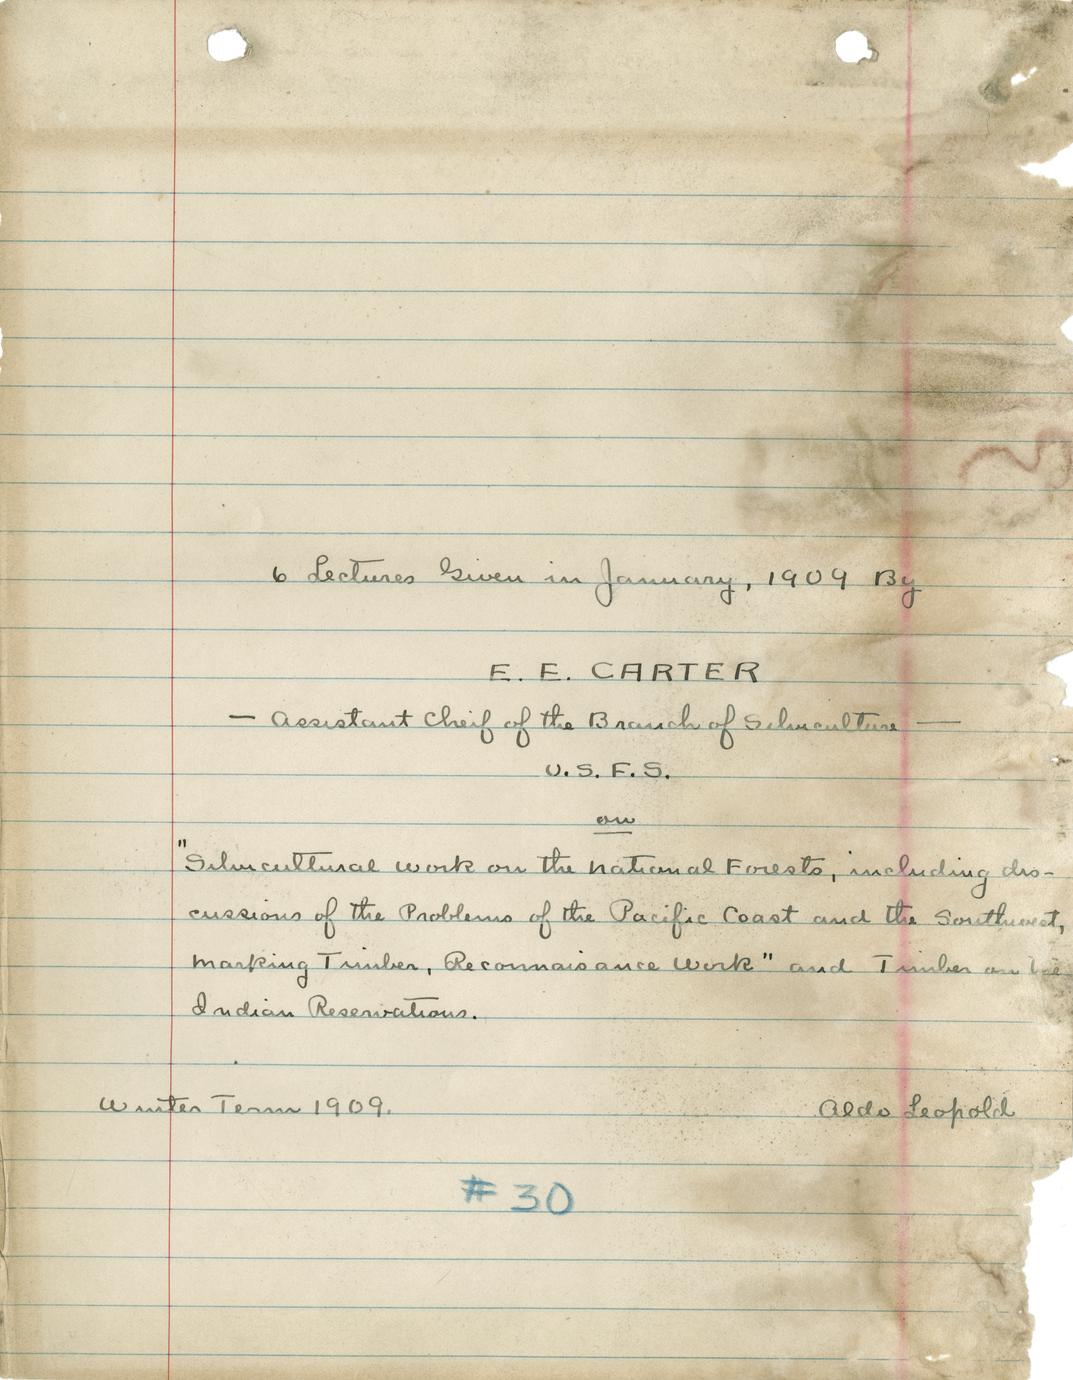 6 Lectures Given in January, 1909 By
E. E. CARTER
— Assistant Cheif of the Branch of Silviculture —
U. S. F. S.
on
"Silvicultural work on the National Forests, including dis-
cussions of the Problems of the Pacific Coast and the Southwest,
Marking Timber, Reconnaissance Work" and Timber on the
Indian Reservations.
Winter Term 1909. Aldo Leopold
# 30